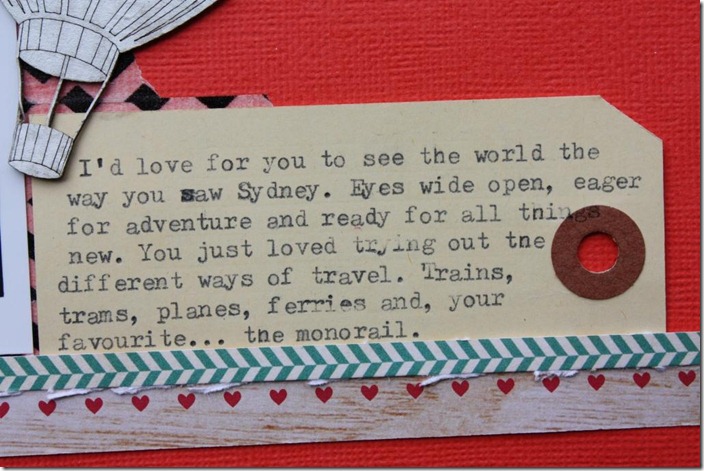 I'd love for you to see the world the
way you saw Sydney. Eyes wide open, eager
for adventure and ready for all things
new. You just loved trying out the
different ways of travel. Trains,
trams, planes, ferries and, your
favourite... the monorail.